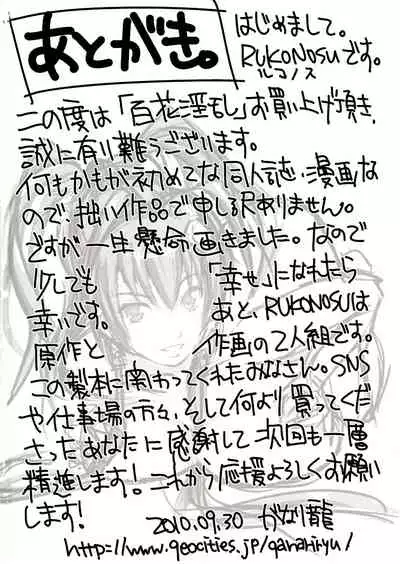 あとがき。
はじめまして。
RUKONOSUです。
ルコノス
この度は「百花淫乱」お買い上げ頂き、
誠に有り難うございます。
何もかもが初めてな同人誌・漫画な
ので、拙い作品で申し訳ありません。
ですが一生懸命画きました。なので
少しでも「幸せ」になれたら
幸いです。あと、RUKONOSUは
原作と作画の2人組です。
この製本に関わってくれたみなさん。SNS
や仕事場の方々、そして何より買ってくだ
さったあなたに感謝して次回も一層
精進します！これから応援よろしくお願い
します！
2010.09.30 がなり龍
http://www.geocities.jp/ganariryu/